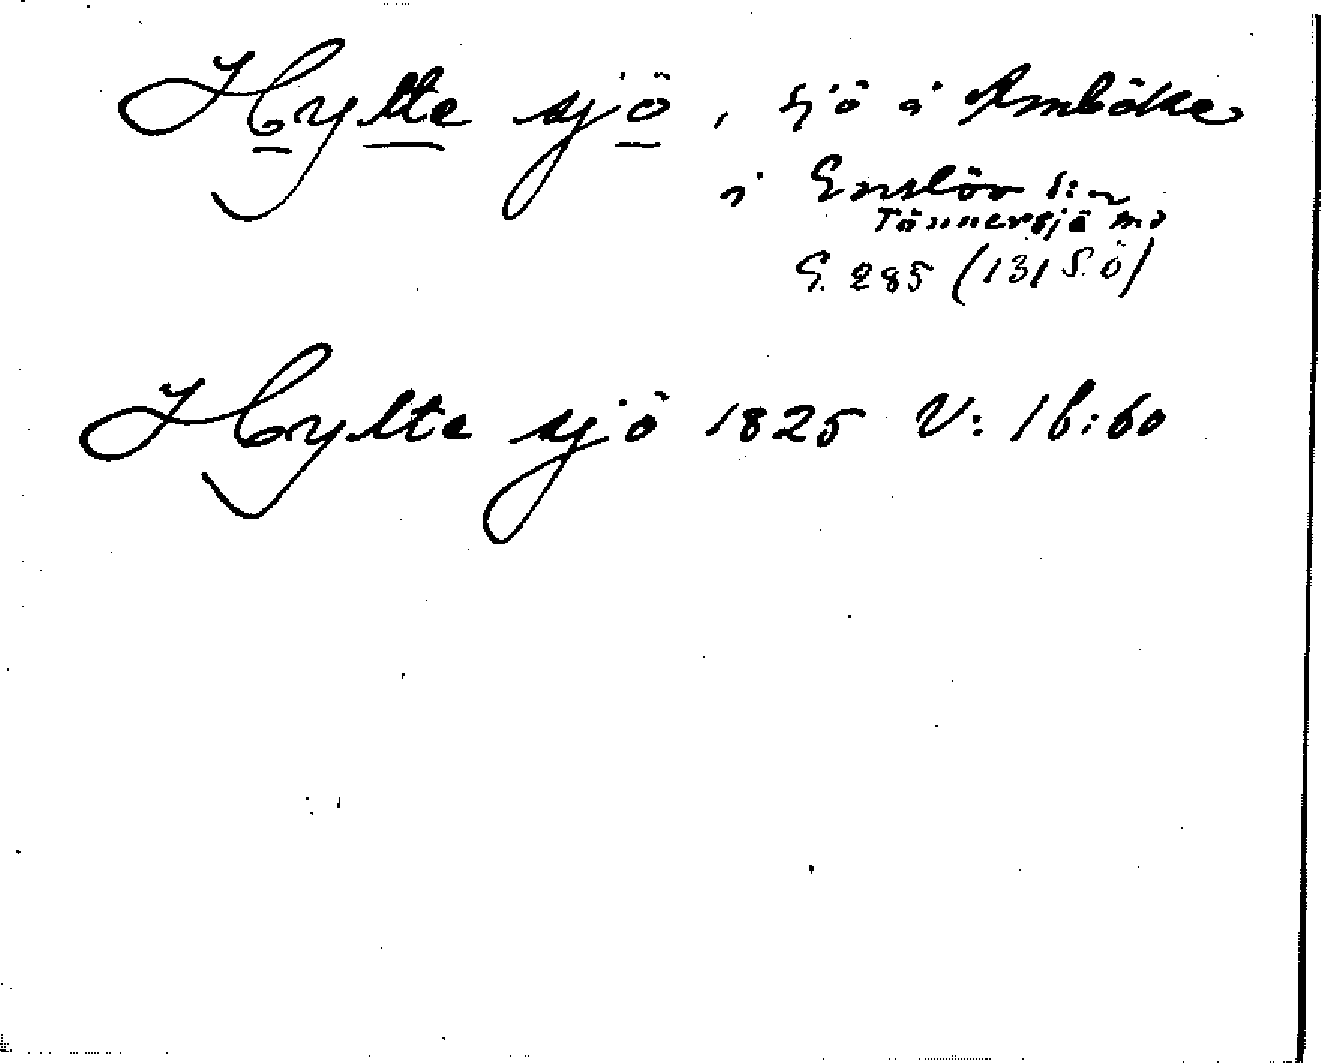 Hylte sjö, sjö i Amböke
i Enslöv s:n
Tönnersjö hd
G. 285 (131 S.Ö)
Hylte sjö 1825 V: 16:60